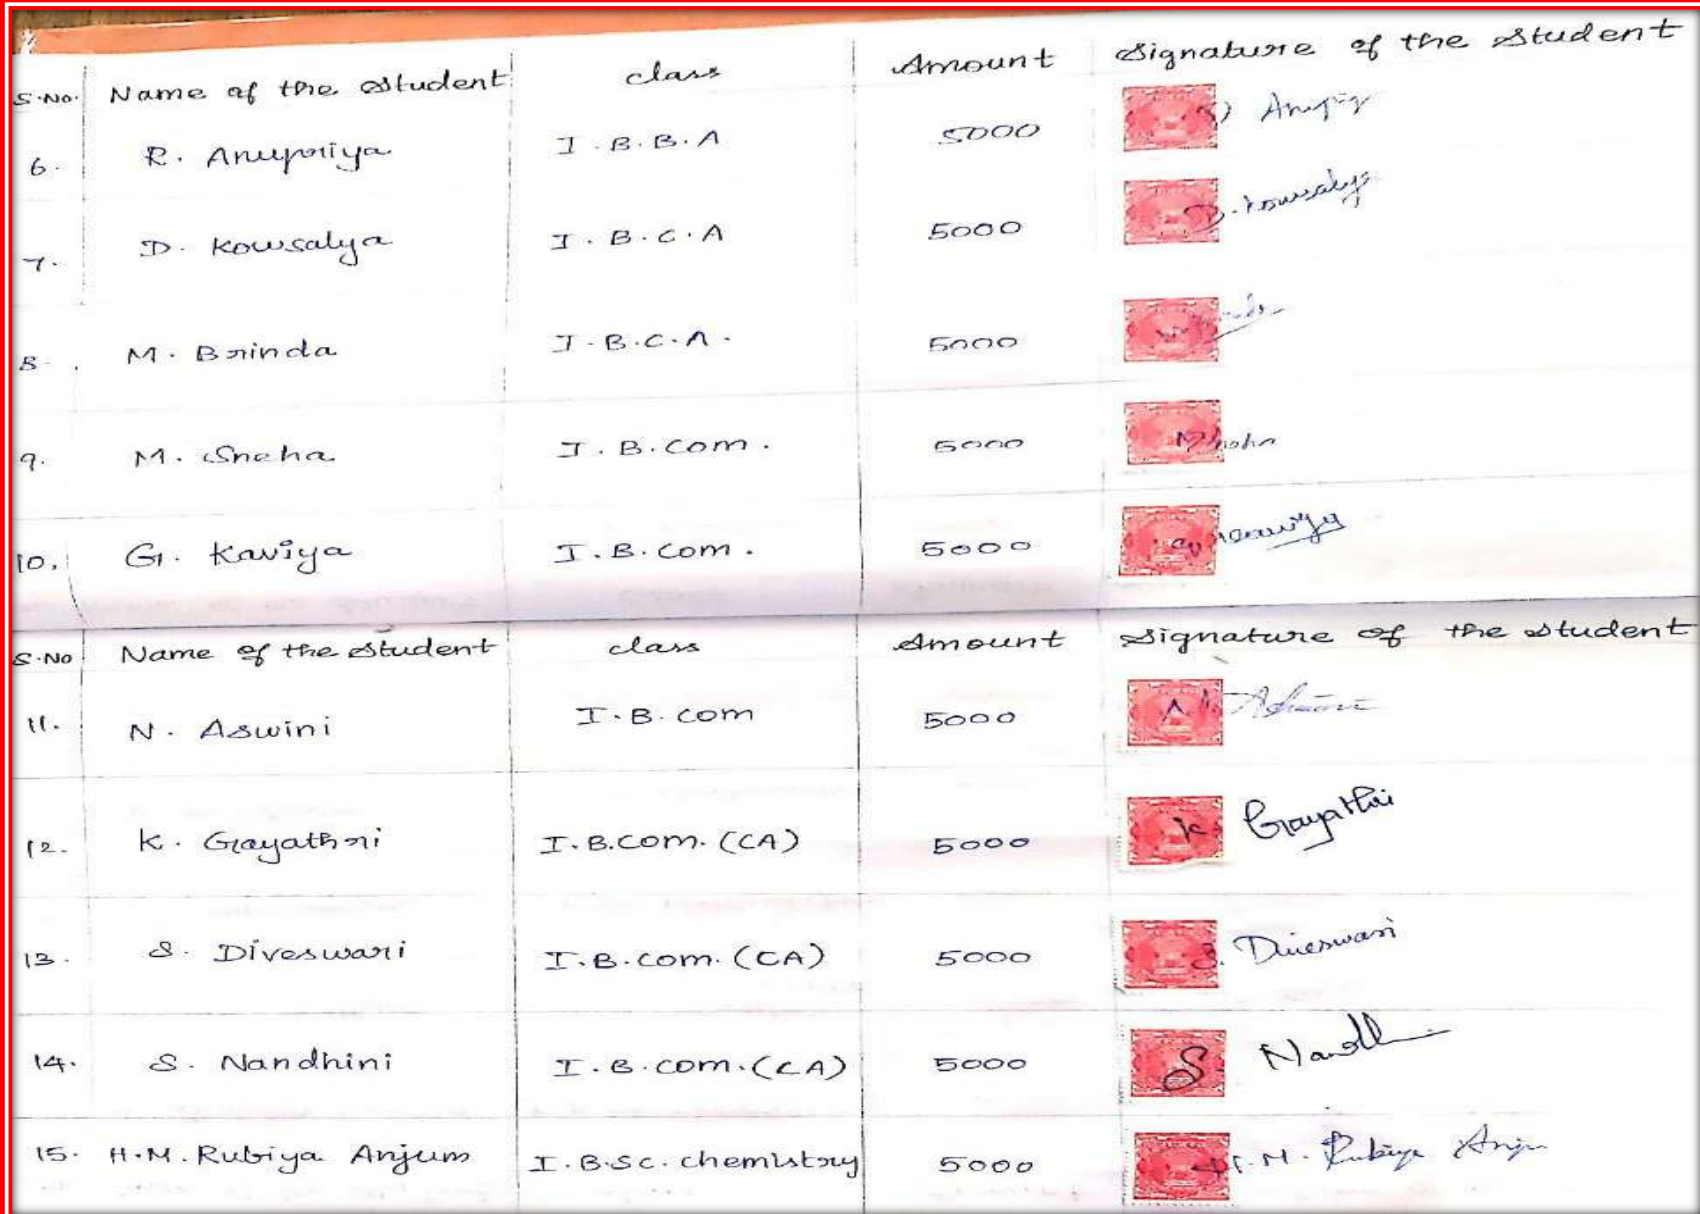 S.No. Name of the student class Amount Signature of the student
6. R. Anupriya I.B.B.A 5000
7. D. Kowsalya I.B.C.A 5000 D. Kowsalya
8. M. Brinda I.B.C.A. 5000
9. M. Sneha I.B.Com. 5000
10. G. Kaviya I.B.Com. 5000
S.No Name of the student class Amount Signature of the student
11. N. Aswini I.B.Com 5000
12. K. Gayathri I.B.Com. (CA) 5000 K. Gayathri
13. S. Diveswari I.B.Com. (CA) 5000 S. Diveswari
14. S. Nandhini I.B.Com. (CA) 5000 S
15. H.M. Rubiya Anjum I.B.Sc. Chemistry 5000 H.M. Rubiya Anju